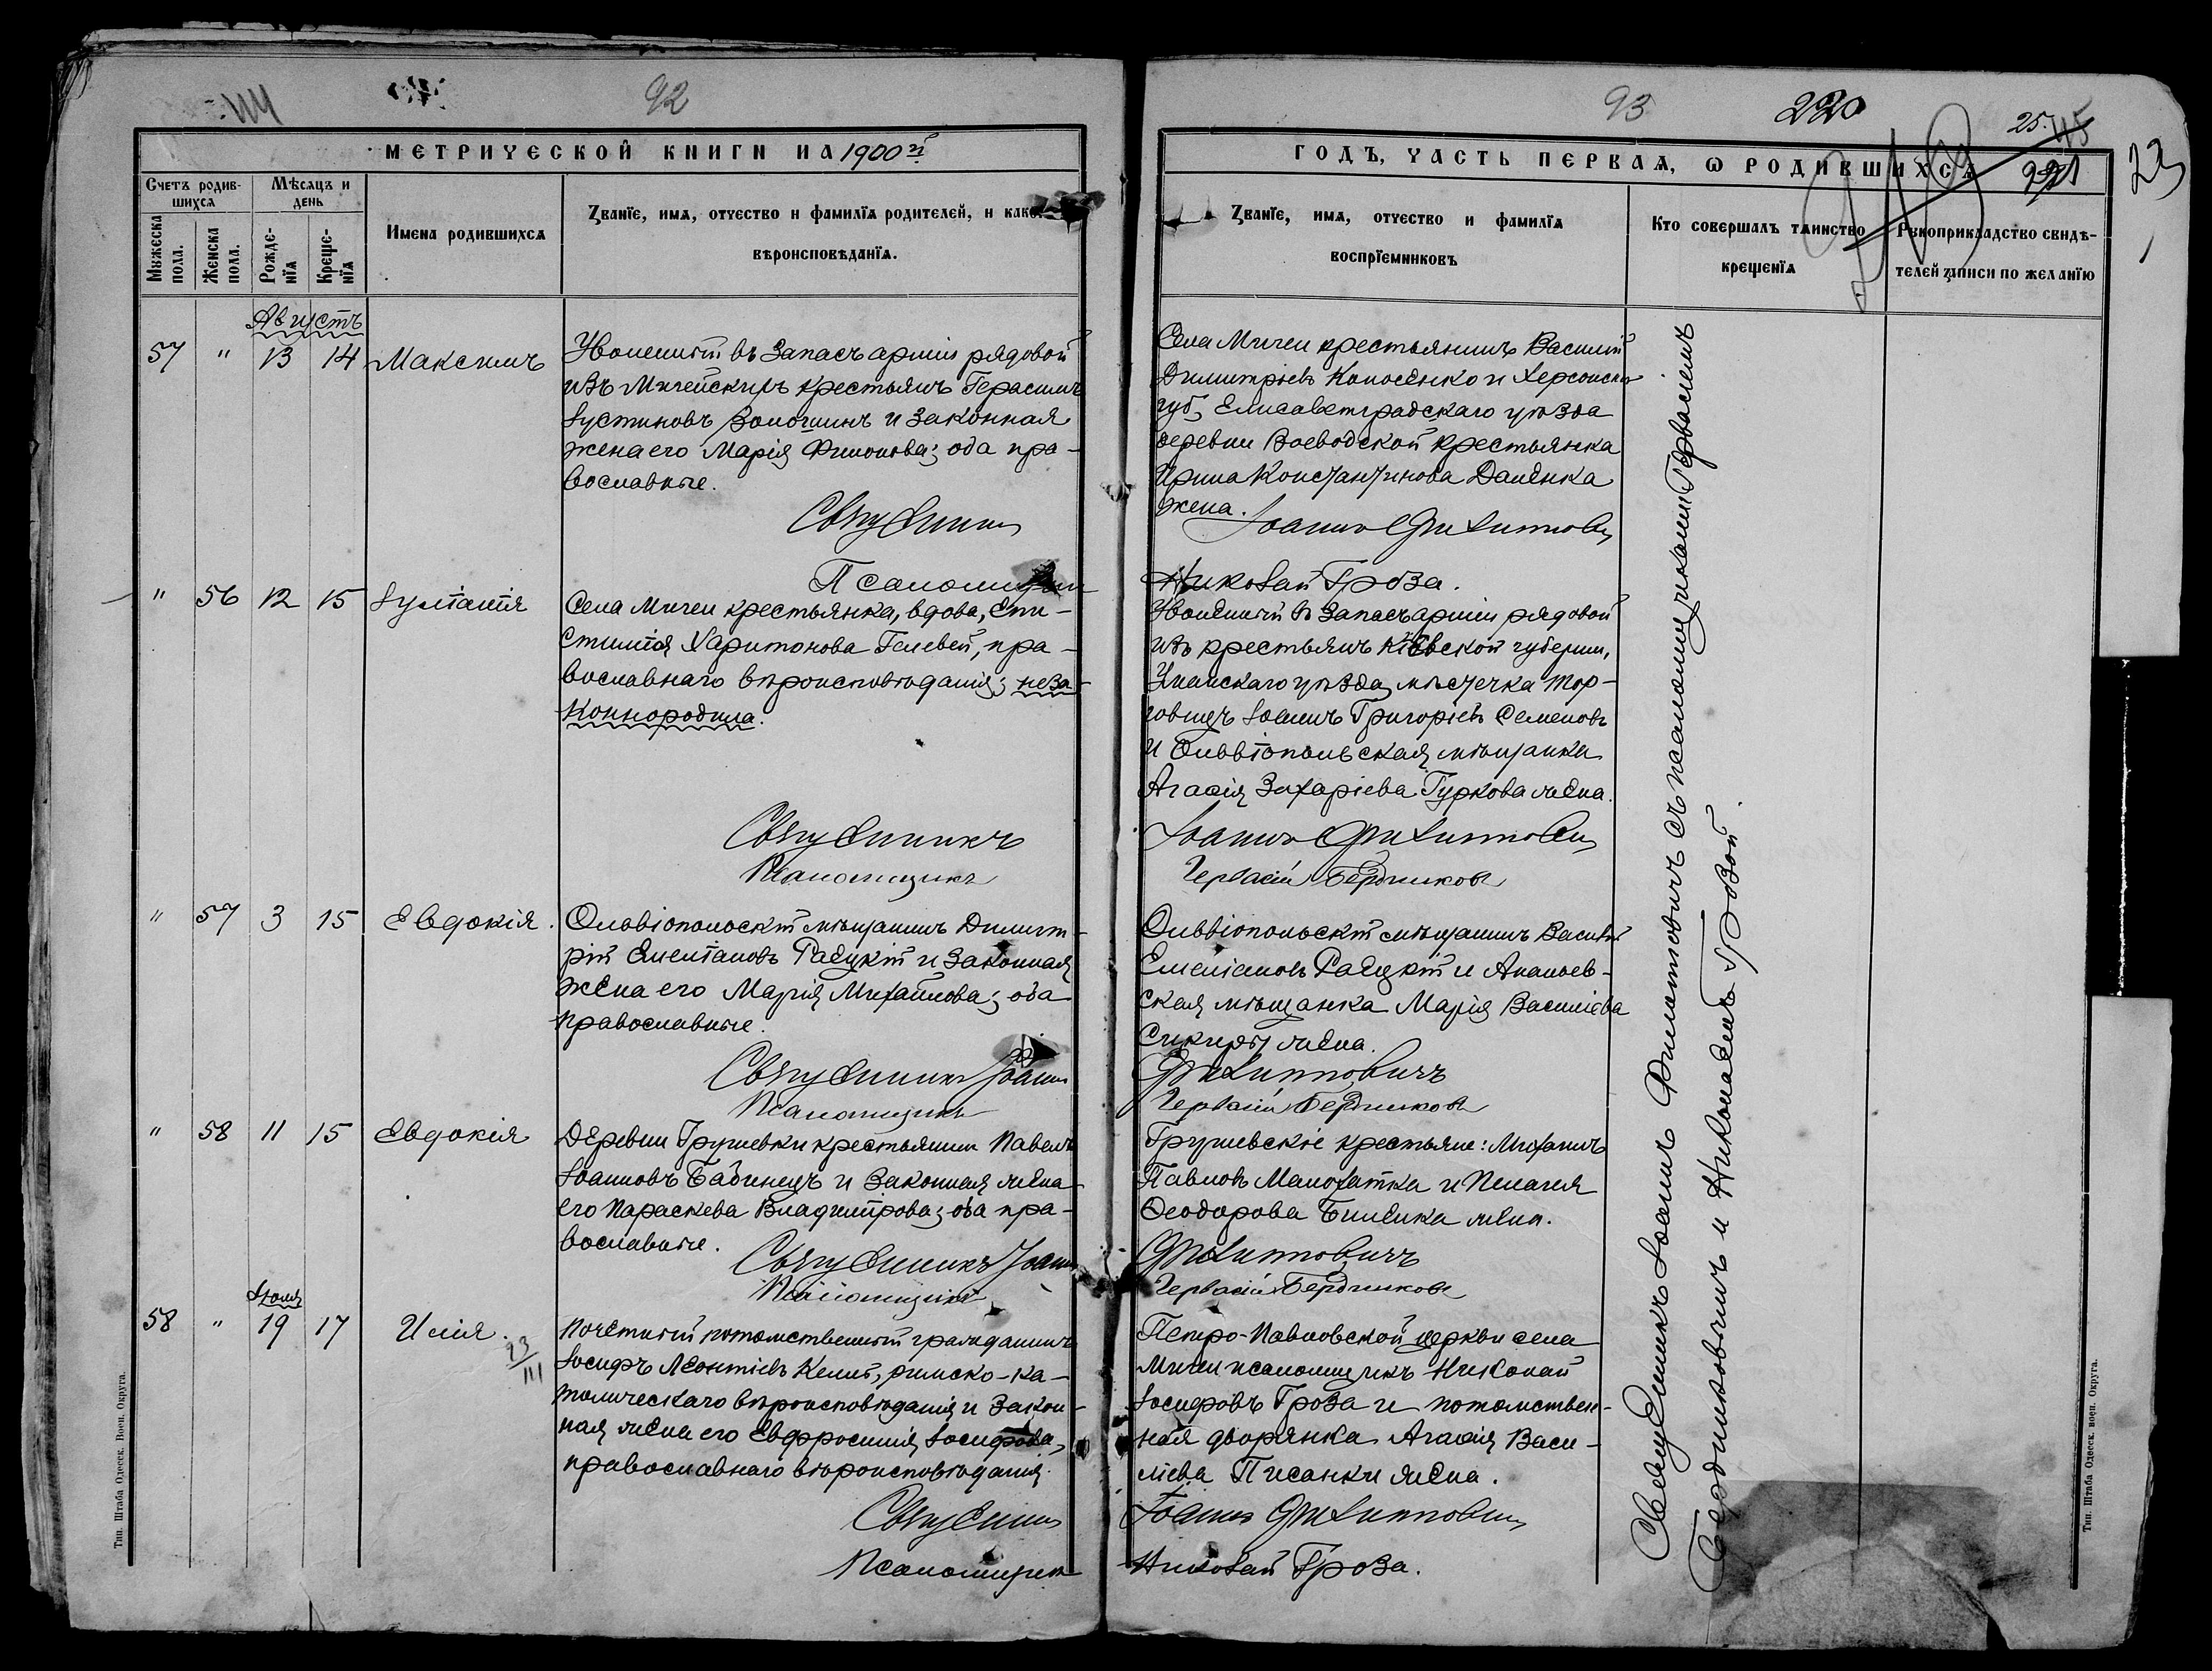 92
МЕТРИЧЕСКОЙ КНИГИ НА 1900й
Счетъ родившихся
Мѣсяцъ и день
Имена родившихся
Званїе, имя, отчество и фамилїя родителей, и какого
вѣроисповѣданїя.
Мужеска пола.
Женска пола.
Рожденїя
Крещенїя
Августъ
57 " 13 14 Максимъ
Уволенный въ запасъ арміи рядовой
изъ Мигейскихъ крестьянъ Герасимъ
Іустиновъ Волошинъ и законная
жена его Марія Филипова; оба пра-
вославные.
Священникъ
Псаломщикъ
" 56 12 15 Іуліанія
Села Мигеи крестьянка, вдова,
Харитонова Гелевей, пра-
вославнаго вѣроисповѣданія; неза-
коннорожденная.
Священникъ
Псаломщикъ
" 57 3 15 Евдокія.
Ольвіопольскій мѣщанинъ Димит-
рій Емеліановъ Радуцкій и законная
жена его Марія Михайлова; оба
православные.
Священникъ Іоаннъ
Псаломщикъ
" 58 11 15 Евдокія
Деревни Грушевки крестьянинъ Павелъ
Іоанновъ Бабинецъ и законная жена
его Параскева Владимірова; оба пра-
вославные.
Священникъ Іоаннъ
Псаломщикъ
Іюля
58 " 19 17 Илія.
Почетный потомственный гражданинъ
Іосифъ Леонтіевъ римско-ка-
толическаго вѣроисповѣданія и закон-
ная жена его Евфросинія Іосифова,
православнаго вѣроисповѣданія.
Священникъ
Псаломщикъ
Тип. Штаба Одесск. Воен. Округа.
93
220
25.
ГОДЪ, ЧАСТЬ ПЕРВАЯ, Ѡ РОДИВШИХСЯ
221
Званїе, имя, отчество и фамилїя
воспрїемниковъ
Кто совершалъ таинство
крещенїя
Рукоприкладство свидѣ-
телей записи по желанїю
Села Мигеи крестьянинъ Василій
Димитріевъ Колосенко и Херсонской
губ, Елисаветградскаго уѣзда
деревни Воеводской крестьянка
Ирина Константинова
жена.
Іоаннъ Филипповичъ
Николай Гроза.
Уволенный въ запасъ арміи рядовой
изъ крестьянъ Кіевской губерніи,
Уманскаго уѣзда, мѣстечка Тор-
говицъ Іоаннъ Григоріевъ Семеновъ
и Ольвіопольская мѣщанка
Агафія Захаріева Гуркова жена.
Іоаннъ Филипповичъ
Гервасій Бердниковъ
Ольвіопольскій мѣщанинъ Василій
Емеліановъ Радуцкій и Ананьев-
ская мѣщанка Марія Василіева
Сикиры жена.
Филипповичъ
Гервасій Бердниковъ
Грушевскіе крестьяне: Михаилъ
Павловъ Малохатка и Пелагея
Феодорова жена.
Филипповичъ
Гервасій Бердниковъ
Петро-Павловской церкви села
Мигеи псаломщикъ Николай
Іосифовъ Гроза и потомствен-
ная дворянка Агафія Васи-
ліева Писанки жена.
Іоаннъ Филипповичъ
Николай Гроза.
Священникъ Іоаннъ Филиповичъ съ псаломщиками Гервасіемъ
Бердниковымъ и Николаемъ Грозой.
Тип. Штаба Одесск. воен. Округа.